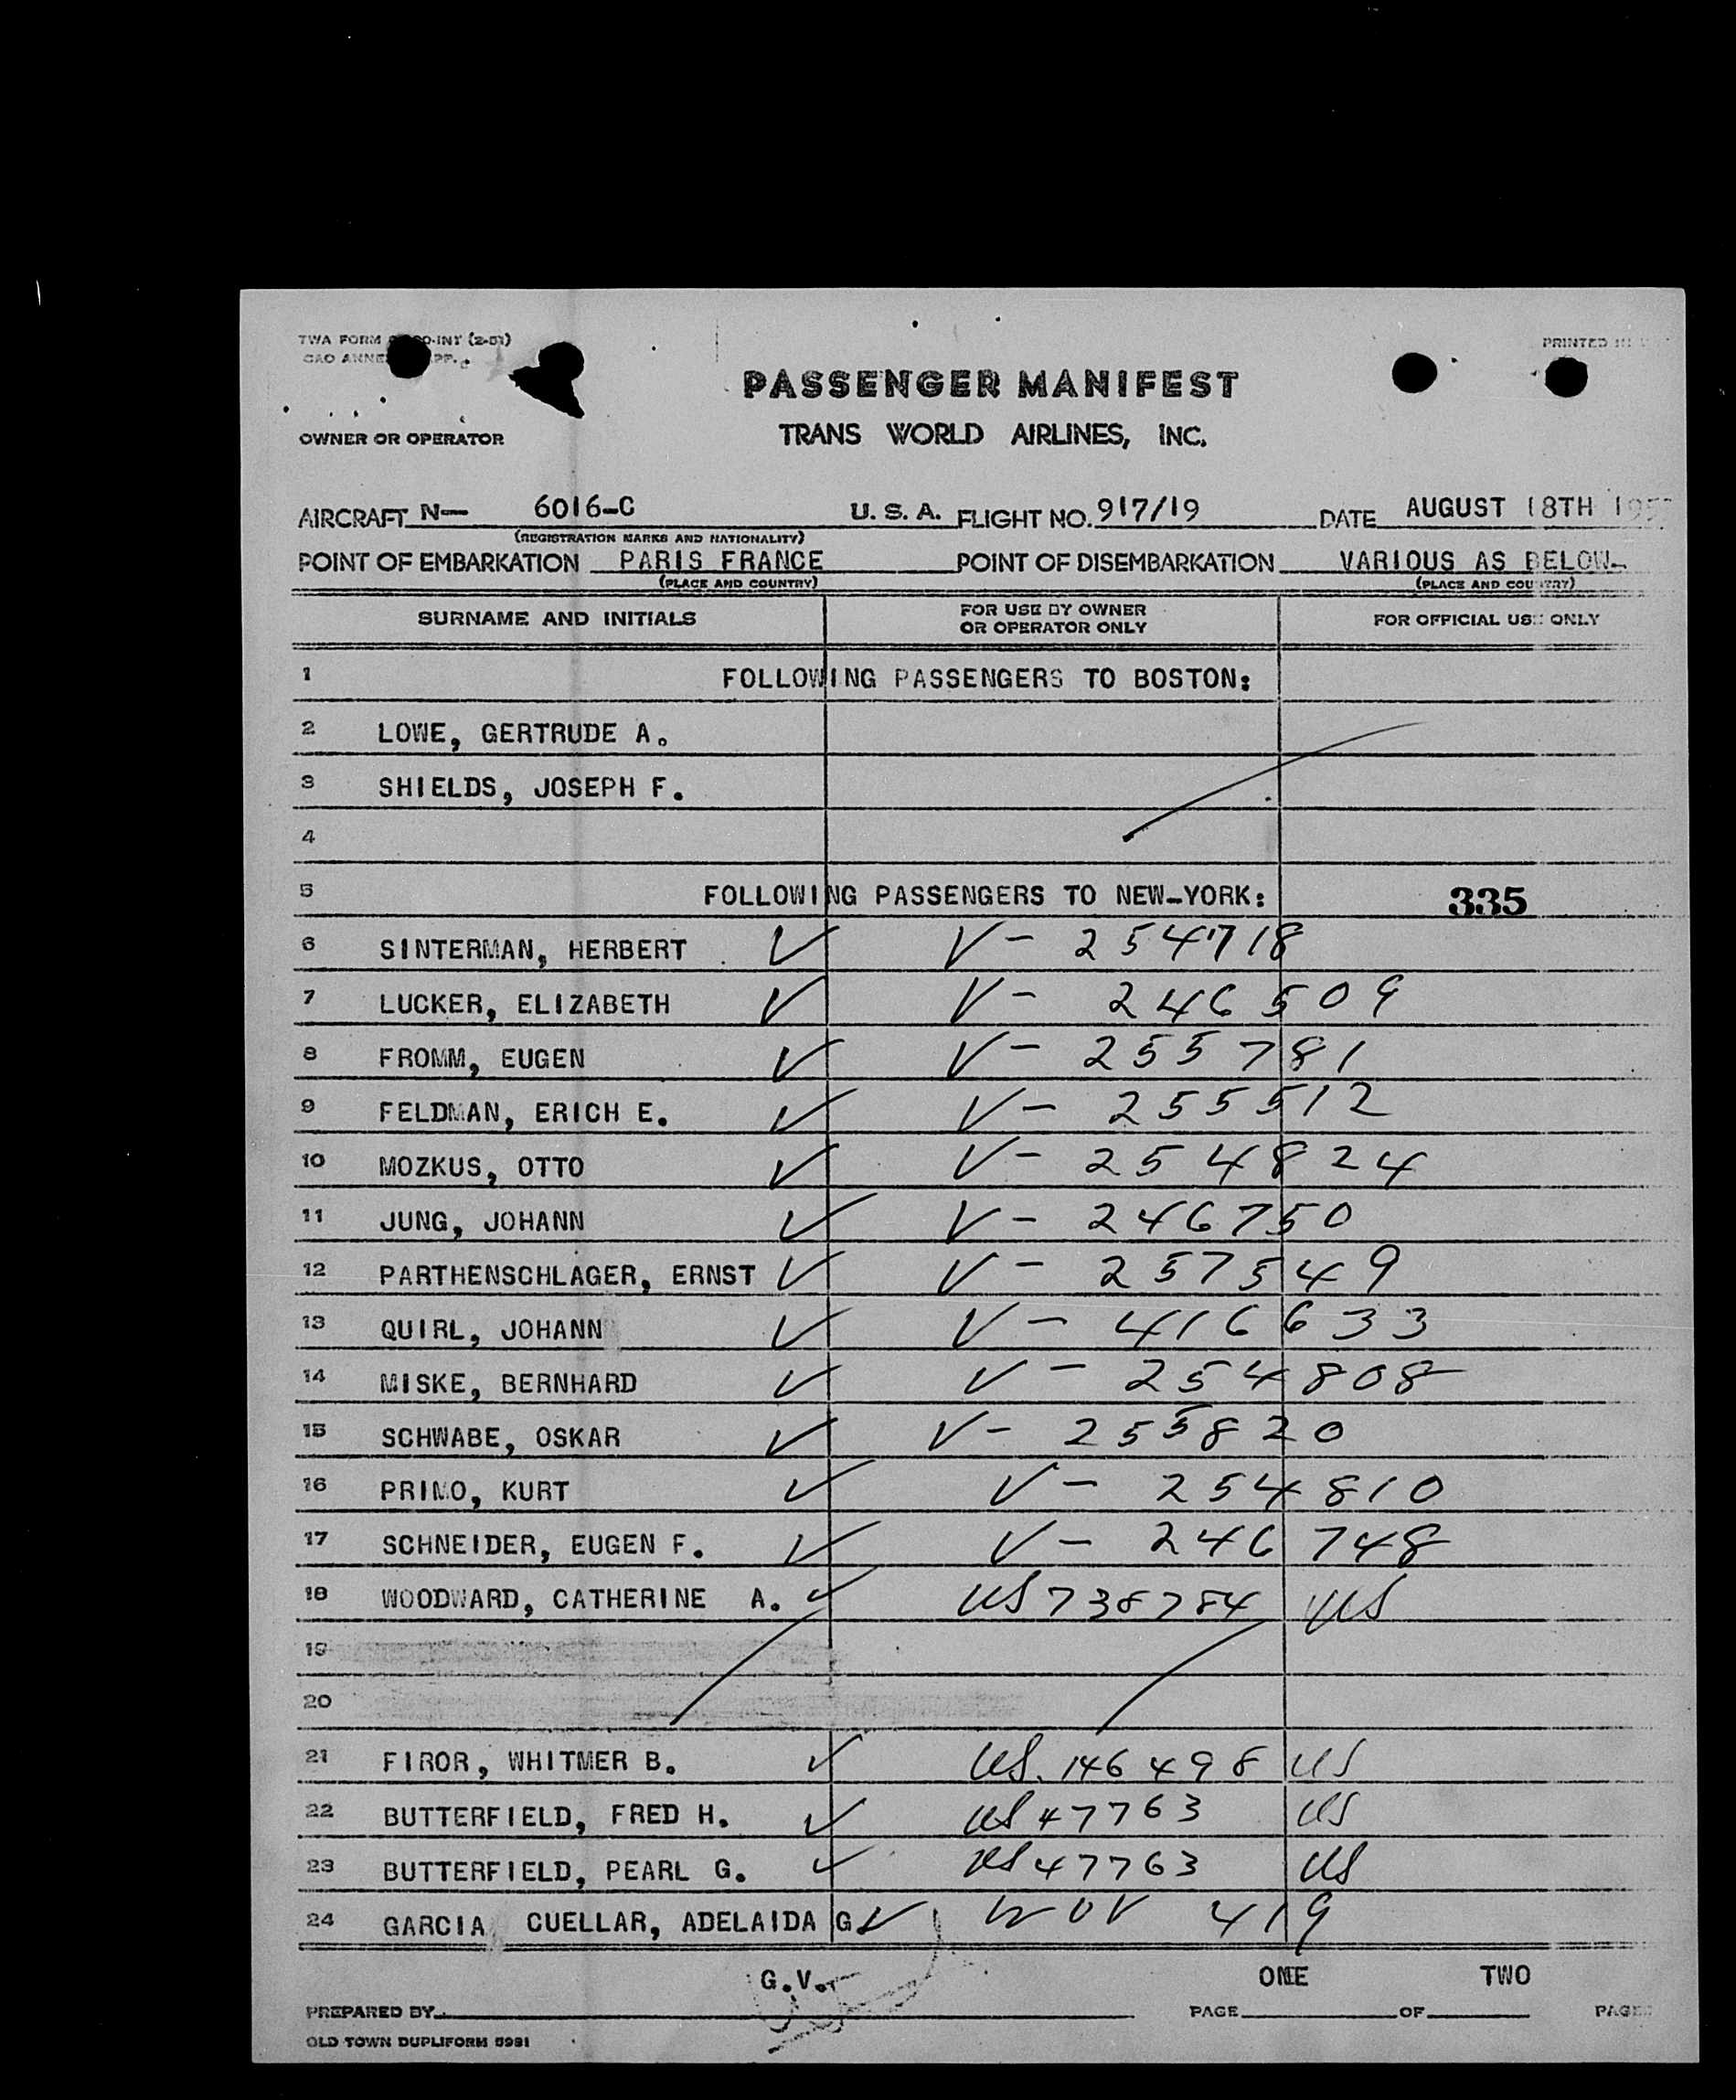 TWA FORM
PRINTED IN
PASSENGER MANIFEST
OWNER OR OPERATOR TRANS WORLD AIRLINES, INC.
AIRCRAFT N— 6016-C U. S. A. FLIGHT NO. 917/19 DATE AUGUST 18TH
(REGISTRATION MARKS AND NATIONALITY)
POINT OF EMBARKATION PARIS FRANCE POINT OF DISEMBARKATION VARIOUS AS BELOW-
(PLACE AND COUNTRY) (PLACE AND COUNTRY)
SURNAME AND INITIALS FOR USE BY OWNER OR OPERATOR ONLY FOR OFFICIAL USE ONLY
1 FOLLOWING PASSENGERS TO BOSTON:
2 LOWE, GERTRUDE A.
3 SHIELDS, JOSEPH F.
4
5 FOLLOWING PASSENGERS TO NEW-YORK: 335
6 SINTERMAN, HERBERT V - 254718
7 LUCKER, ELIZABETH V - 246509
8 FROMM, EUGEN V - 255781
9 FELDMAN, ERICH E. V - 255512
10 MOZKUS, OTTO V - 254824
11 JUNG, JOHANN V - 246750
12 PARTHENSCHLAGER, ERNST V - 257549
13 QUIRL, JOHANN V - 416633
14 MISKE, BERNHARD V - 254808
15 SCHWABE, OSKAR V - 255820
16 PRIMO, KURT V - 254810
17 SCHNEIDER, EUGEN F. V - 246748
18 WOODWARD, CATHERINE A. US 738784 US
19
20
21 FIROR, WHITMER B. US. 146498 US
22 BUTTERFIELD, FRED H. US 47763 US
23 BUTTERFIELD, PEARL G. US 47763 US
24 GARCIA CUELLAR, ADELAIDA G. 419
G.V. ONE TWO
PREPARED BY PAGE OF PAGES
OLD TOWN DUPLIFORM 5981